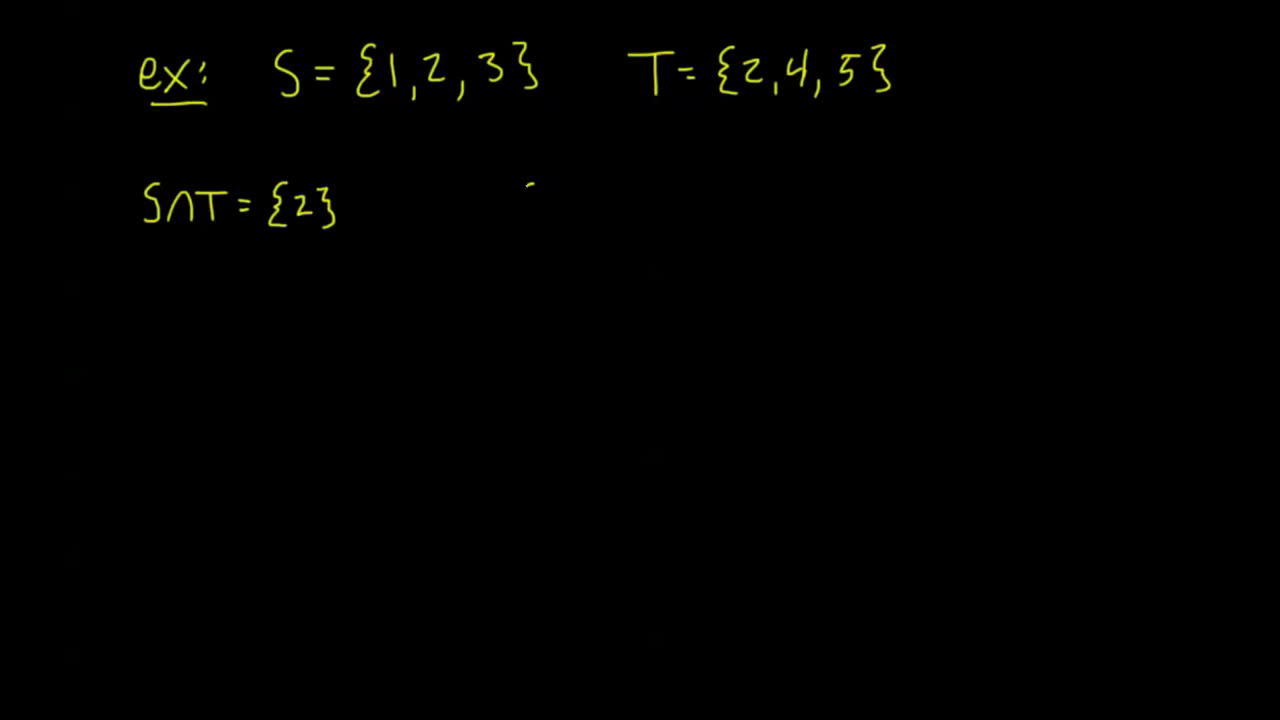 ex: S = {1, 2, 3} T = {2, 4, 5}
S∩T = {2}